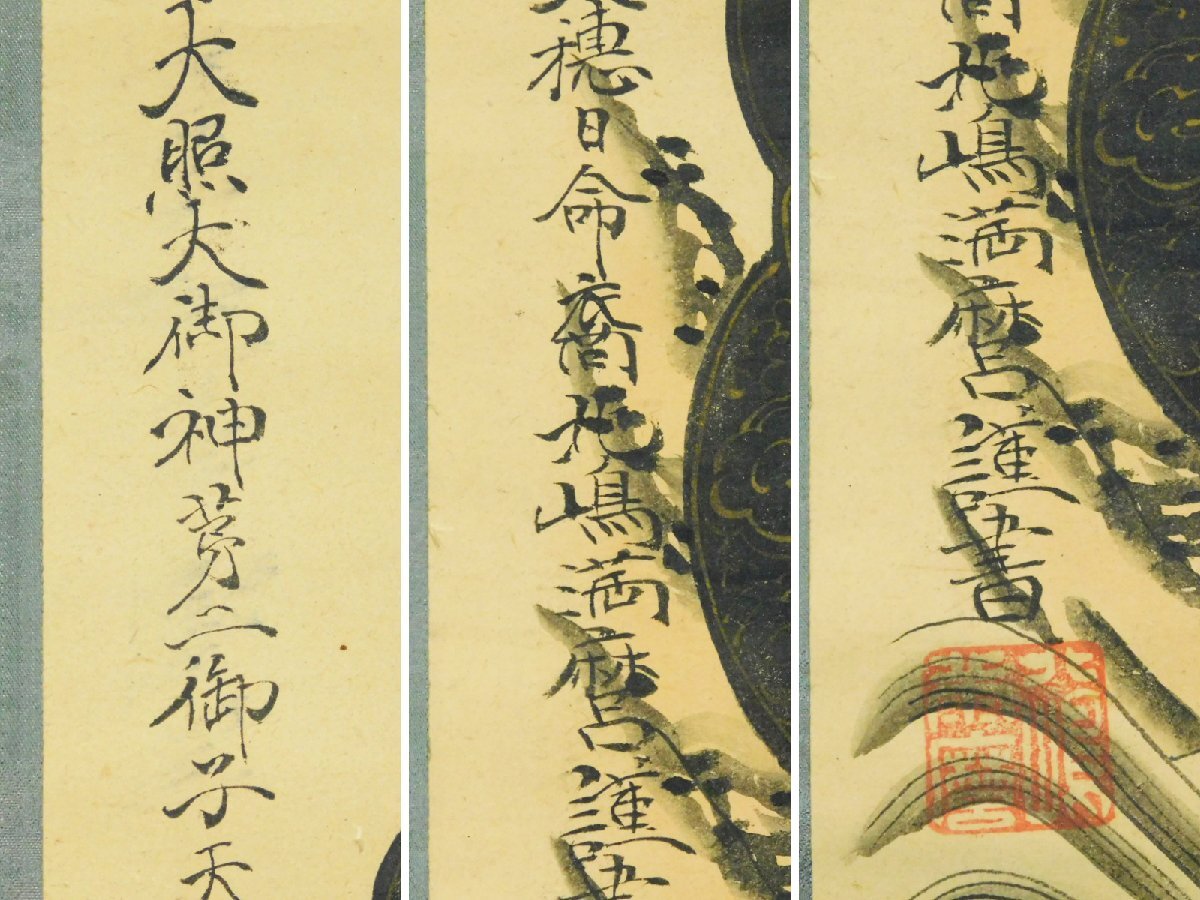 天照大御神第二御子天
穂日命裔北嶋満麿謹
裔北嶋満麿謹書